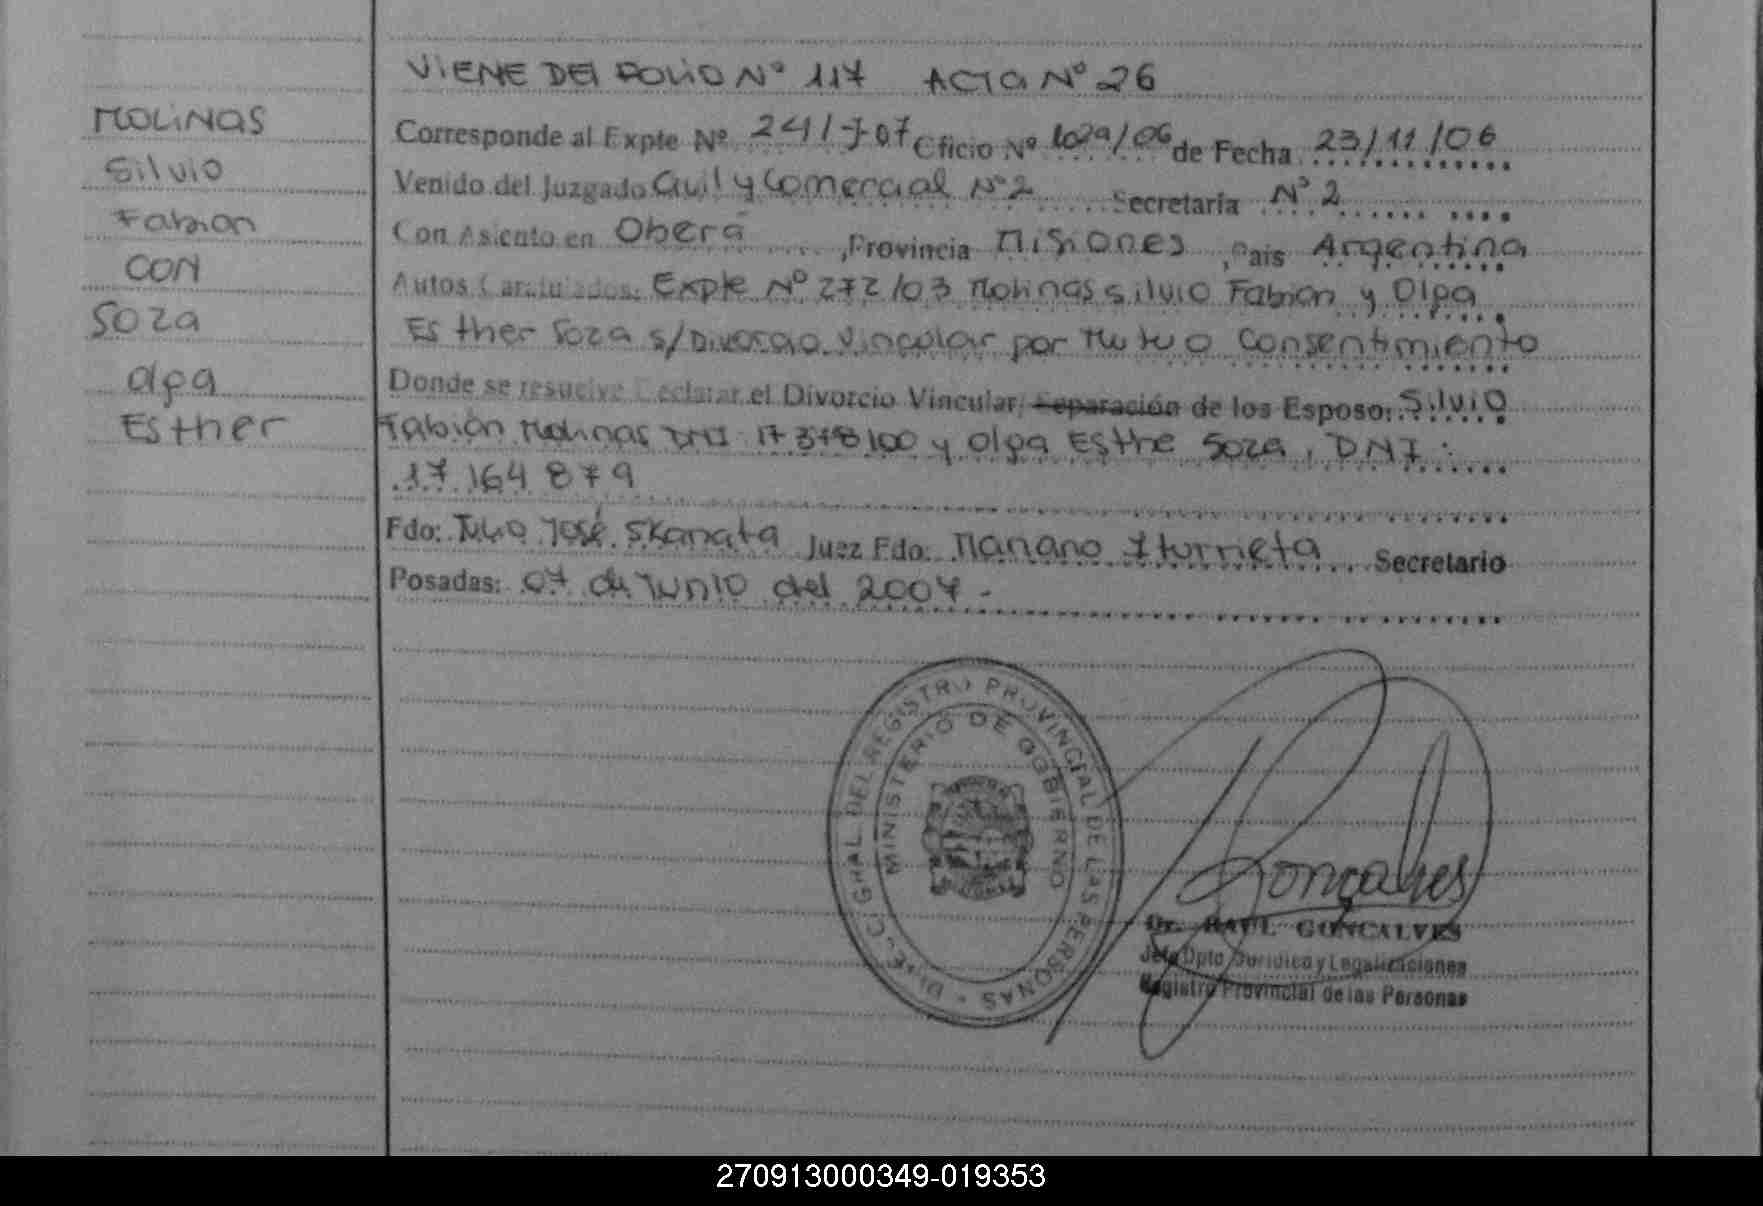 VIENE DEL FOLIO Nº 117 ACTA Nº 26
MOLINAS
Silvio
Fabian
CON
Soza
Olga
Esther
Corresponde al Expte Nº 241-J-07 Oficio Nº 1029/06 de Fecha 23/11/06
Venido del Juzgado Civil y Comercial Nº 2 Secretaría Nº 2
Con Asiento en Oberá, Provincia Misiones, País Argentina
Autos Caratulados: Expte Nº 272/03 Molinas Silvio Fabian y Olga
Esther Soza s/Divorcio Vincular por Mutuo Consentimiento
Donde se resuelve Declarar el Divorcio Vincular, Separación de los Esposo: Silvio
Fabián Molinas DNI 17 378 100 y Olga Esthe Soza, DNI:
17 164 879
Fdo: Tulio José Skanata Juez Fdo: Mariano Iturrieta Secretario
Posadas: 07 de Junio del 2007.-
DIREC. GRAL. DEL REGISTRO PROVINCIAL DE LAS PERSONAS
MINISTERIO DE GOBIERNO
Goncalves
Dr. RAUL GONCALVES
Jefe Dpto Jurídico y Legalizaciones
Registro Provincial de las Personas
270913000349-019353